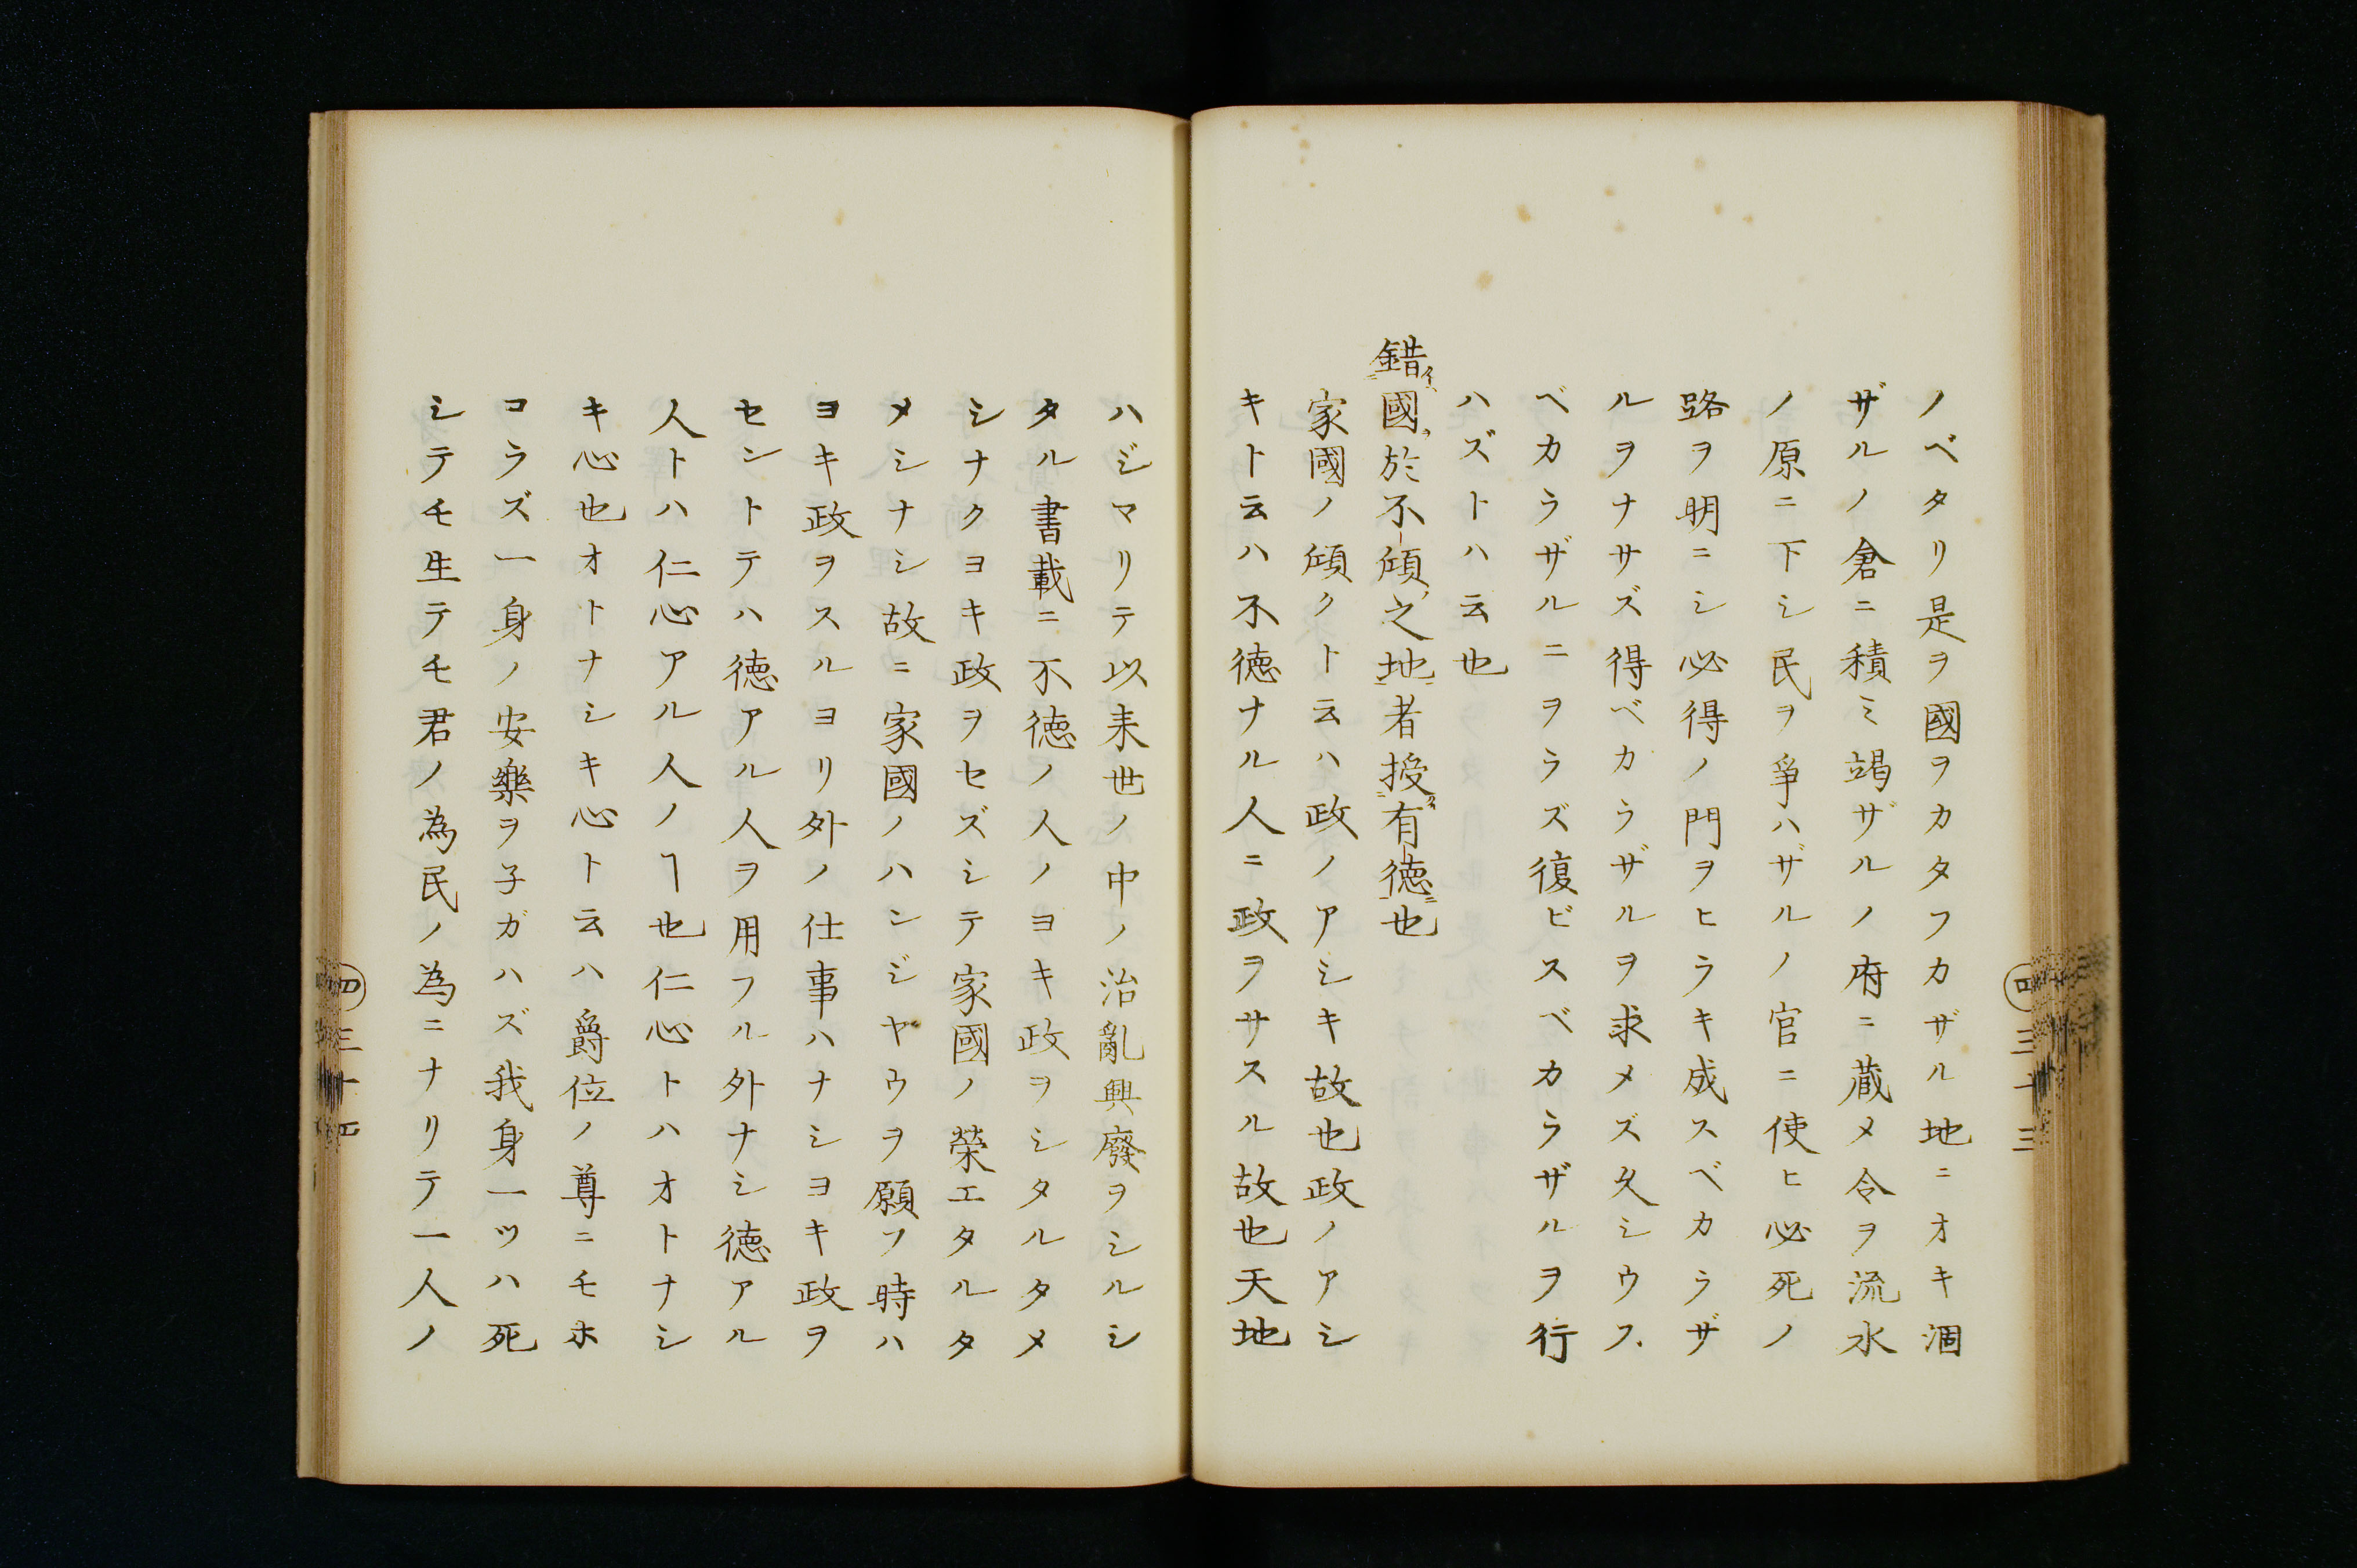 ノベタリ是ヲ國ヲカタフカザル地ニオキ涸
ザルノ倉ニ積ミ竭ザルノ府ニ蔵メ令ヲ流水
ノ原ニ下シ民ヲ爭ハザルノ官ニ使ヒ必死ノ
路ヲ明ニシ必得ノ門ヲヒラキ成スベカラザ
ルヲナサズ得ベカラザルヲ求メズ久シウス
ベカラザルニヲラズ復ビスベカラザルヲ行
ハズトハ云也
錯國於不傾之地者授有徳也
家國ノ傾クト云ハ政ノアシキ故也政ノアシ
キト云ハ不徳ナル人ニ政ヲサスル故也天地
ハジマリテ以来世ノ中ノ治亂興廢ヲシルシ
タル書載ニ不徳ノ人ノヨキ政ヲシタルタメ
シナクヨキ政ヲセズシテ家國ノ榮エタルタ
メシナシ故ニ家國ノハンジヤウヲ願フ時ハ
ヨキ政ヲスルヨリ外ノ仕事ハナシヨキ政ヲ
セントテハ徳アル人ヲ用フル外ナシ徳アル
人トハ仁心アル人ノヿ也仁心トハオトナシ
キ心也オトナシキ心ト云ハ爵位ノ尊ニモホ
コラズ一身ノ安樂ヲ子ガハズ我身一ツハ死
シテモ生テモ君ノ為民ノ為ニナリテ一人ノ
四 三十三
四 三十四